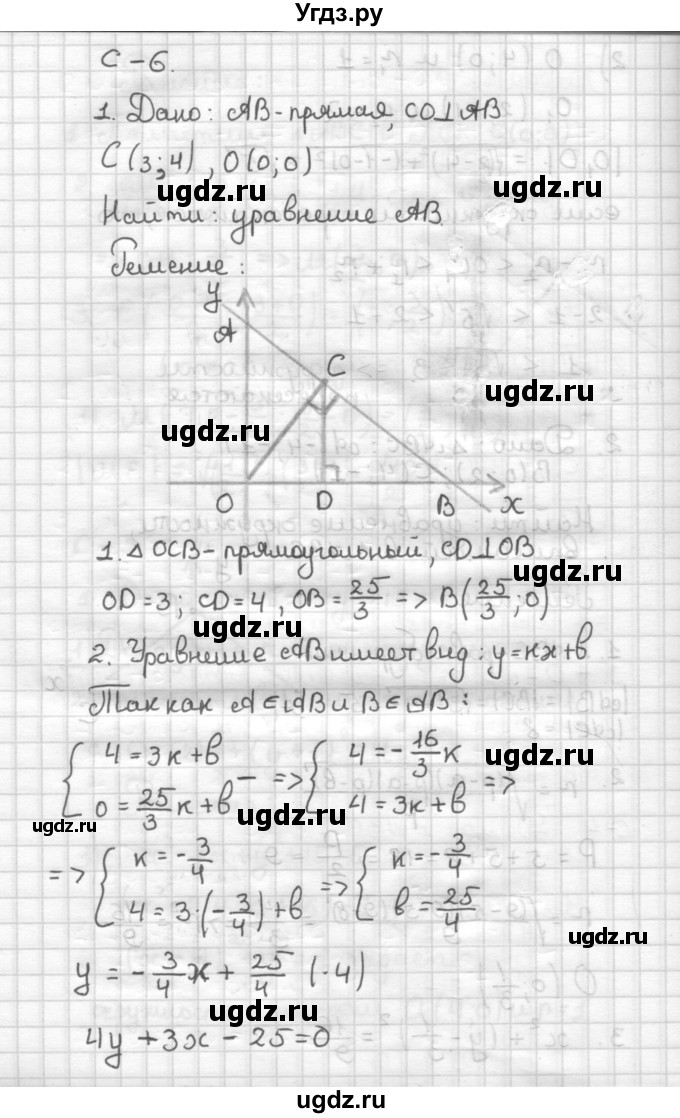 Угдз.ру
С-6.
1. Дано: AB-прямая, CO⊥AB
C(3;4), O(0;0)
ugdz.ru
Найти: уравнение AB.
ugdz.ru
Решение:
y
A
C
ugdz.ru
ugdz.ru
O D B x
1. △OCB-прямоугольный, CD⊥OB
ugdz.ru
OD=3; CD=4, OB=25/3 => B(25/3;0)
ugdz.ru
2. Уравнение AB имеет вид: y=кx+b
ugdz.ru
Так как A∈AB и B∈AB:
{ 4=3к+b
0=25/3к+b - => { 4=-16/3к
4=3к+b =>
ugdz.ru
ugdz.ru
ugdz.ru
=> { к=-3/4
4=3·(-3/4)+b => { к=-3/4
b=25/4
ugdz.ru
ugdz.ru
y=-3/4x+25/4 (·4)
ugdz.ru
4y+3x-25=0
ugdz.ru
ugdz.ru